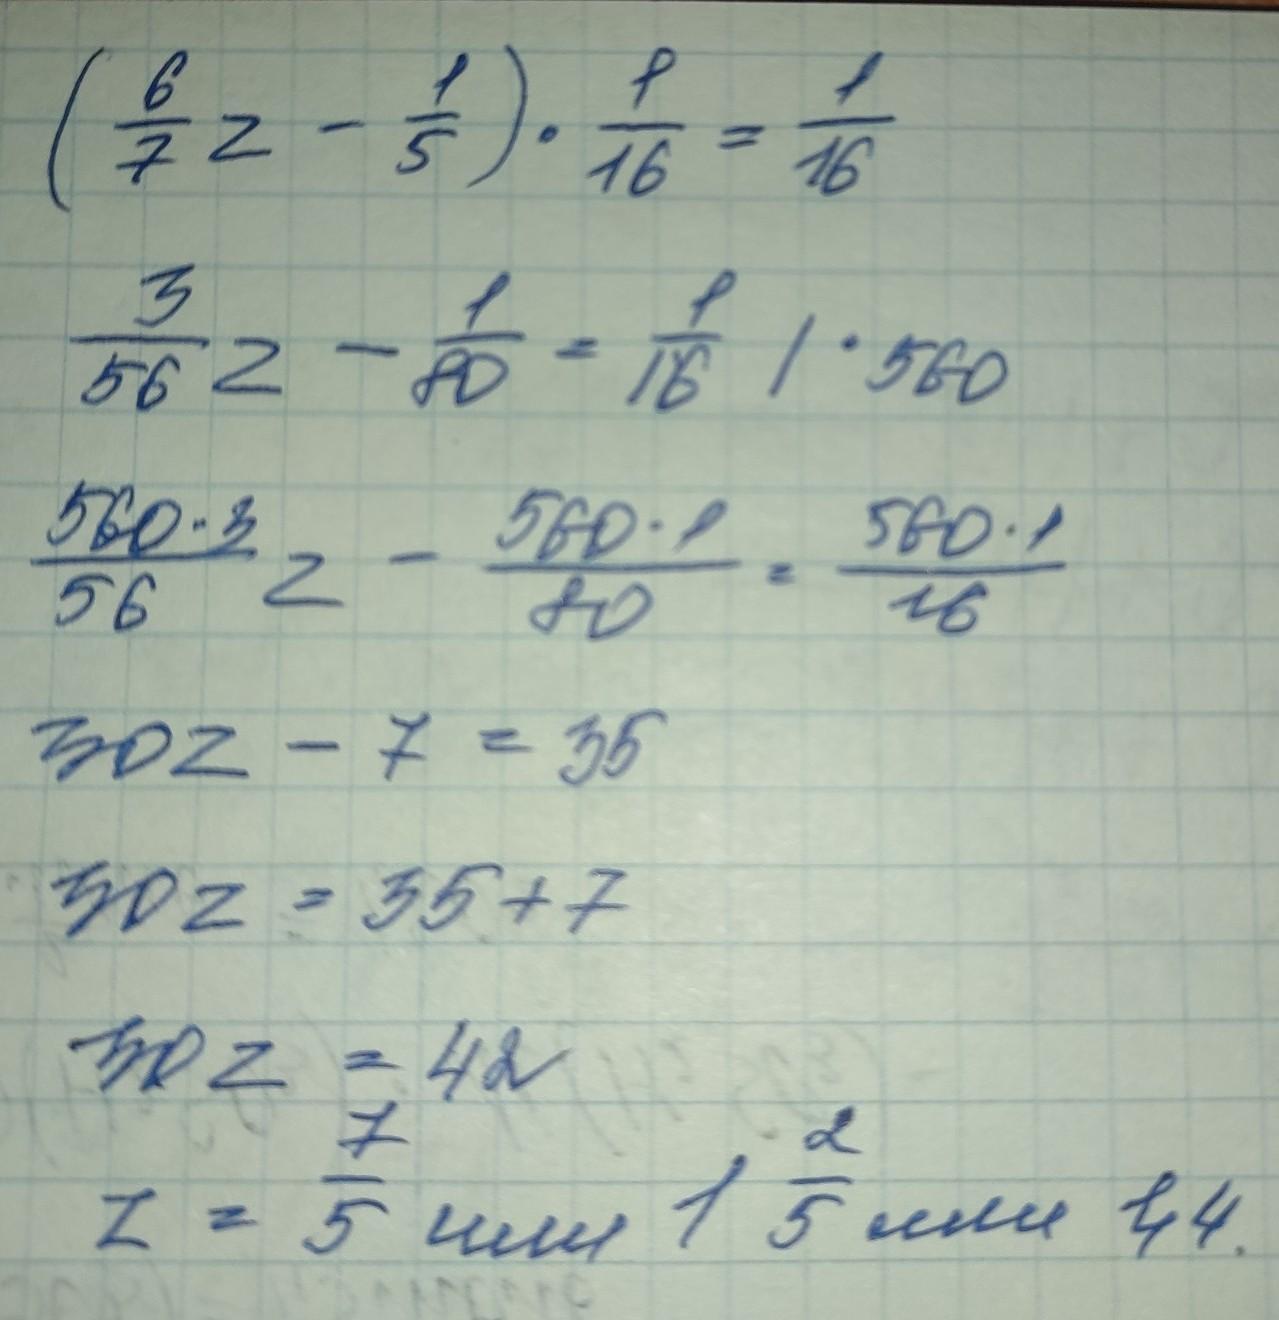 (6/7 z - 1/5) · 1/16 = 1/16
3/56 z - 1/80 = 1/16 | · 560
560·3/56 z - 560·1/80 = 560·1/16
30z - 7 = 35
30z = 35 + 7
30z = 42
z = 7/5 или 1 2/5 или 1,4.